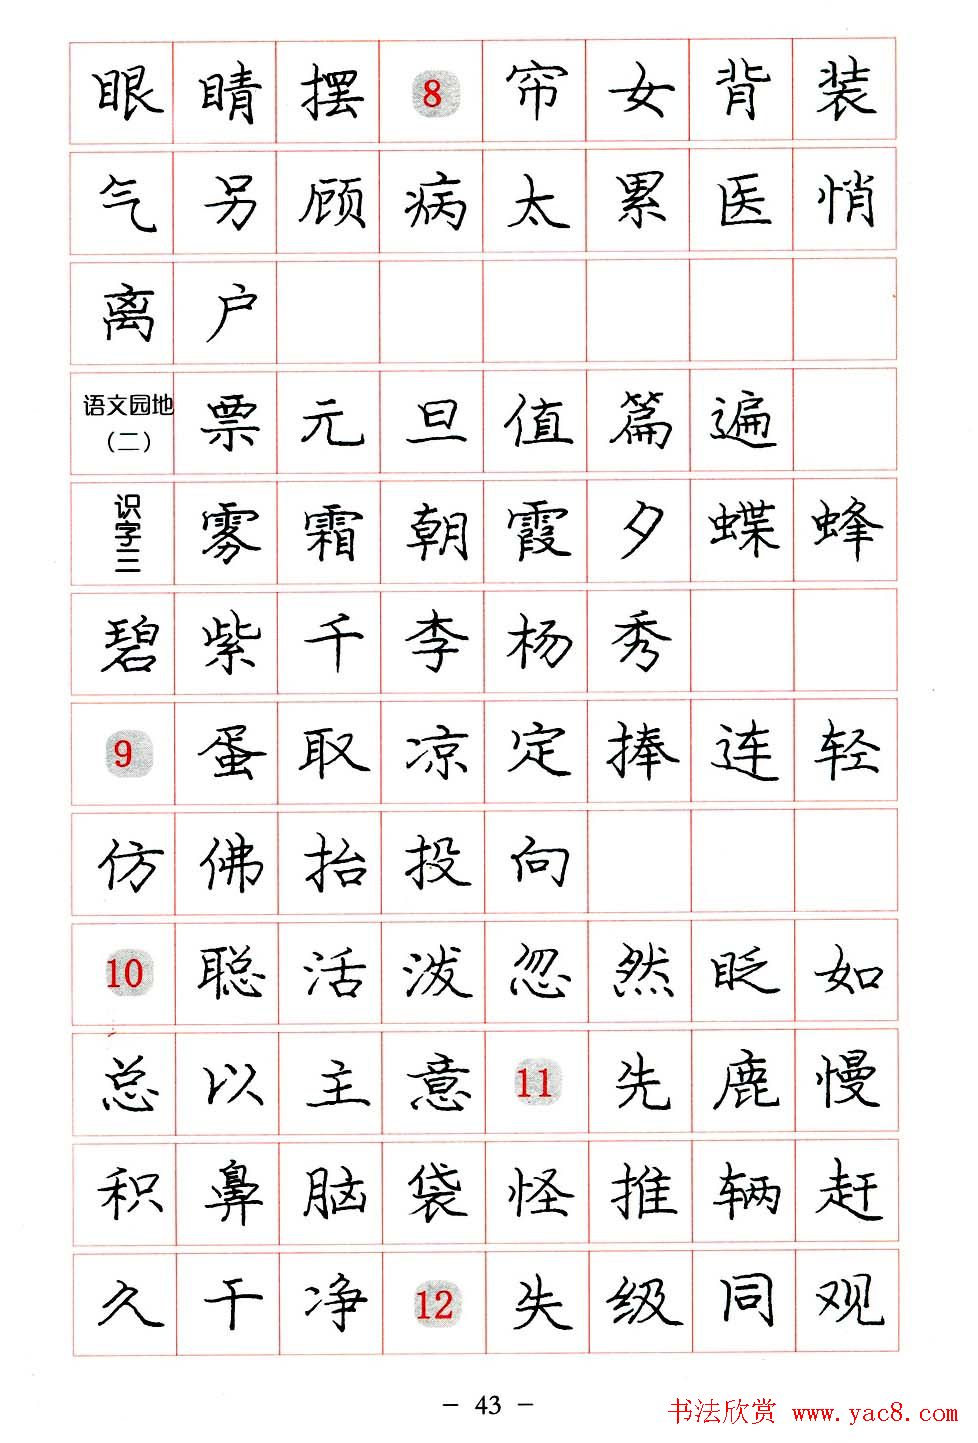 眼 睛 摆 8 帘 女 背 装
气 另 顾 病 太 累 医 悄
离 户
语文园地（二） 票 元 旦 值 篇 遍
识字三 雾 霜 朝 霞 夕 蝶 蜂
碧 紫 千 李 杨 秀
9 蛋 取 凉 定 捧 连 轻
仿 佛 抬 投 向
10 聪 活 泼 忽 然 眨 如
总 以 主 意 11 先 鹿 慢
积 鼻 脑 袋 怪 推 辆 赶
久 干 净 12 失 级 同 观
- 43 -
书法欣赏 www.yac8.com